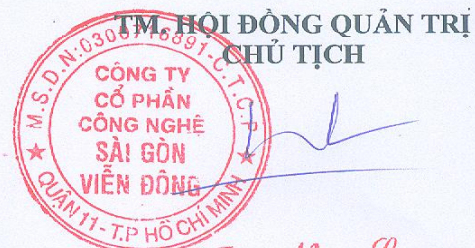 TM. HỘI ĐỒNG QUẢN TRỊ
CHỦ TỊCH
CÔNG TY
CỔ PHẦN
CÔNG NGHỆ
SÀI GÒN
VIỄN ĐÔNG
QUẬN 11 - T.P HỒ CHÍ MINH